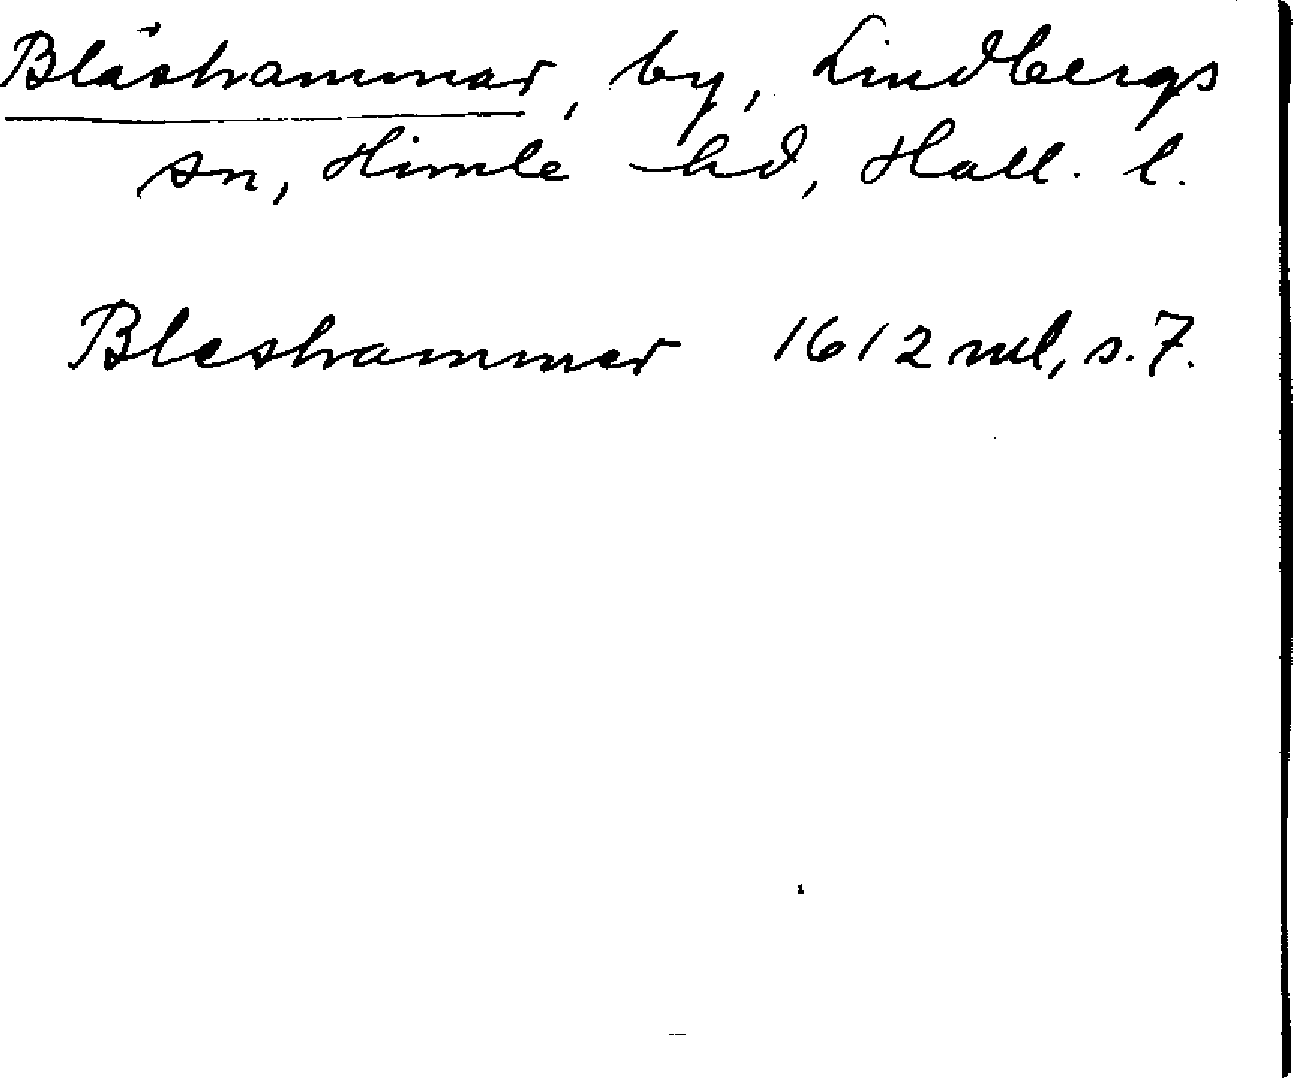 Blåshammar, by, Lindbergs
sn, Himle hd, Hall. l.
Bleshammer 1612 ml, s. 7.